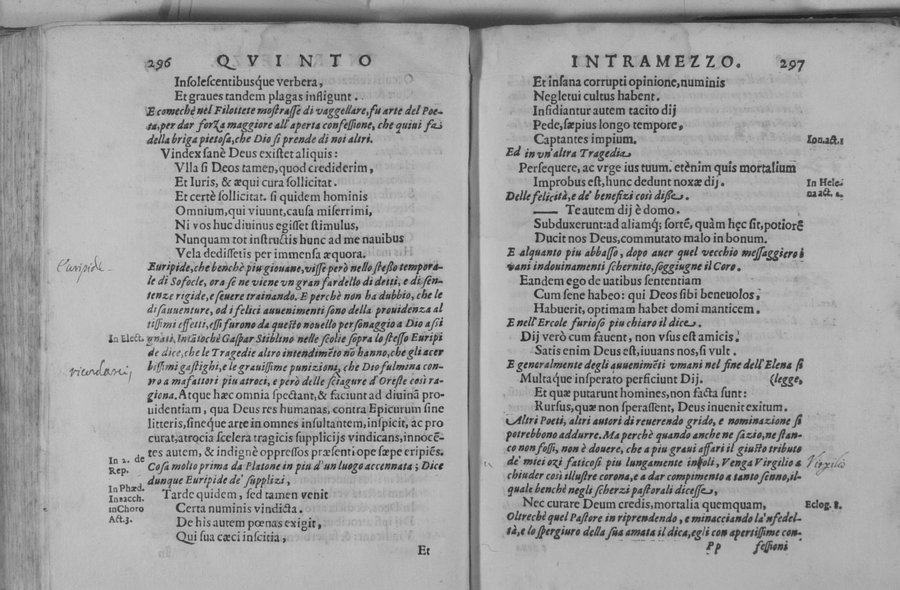 296 QVINTO
Insolescentibusque verbera,
Et graues tandem plagas infligunt.
E comechè nel Filottete mostrasse di vaggellare, fu arte del Poe-
ta, per dar forza maggiore all'aperta confessione, che quiui fa
della briga pietosa, che Dio si prende di noi altri.
Vindex sanè Deus existet aliquis:
Vlla si Deos tamen, quod crediderim,
Et Iuris, & æqui cura sollicitat.
Et certè sollicitat. si quidem hominis
Omnium, qui viuunt, causa miserrimi,
Ni vos huc diuinus egisset stimulus,
Nunquam tot instructis hunc ad me nauibus
Vela dedissetis per immensa æquora.
Euripide
Euripide, che benchè piu giouane, visse però nello stesso tempora-
le di Sofocle, ora se ne viene vn gran fardello di detti, e di sen-
tenze rigide, e seuere trainando. E perchè non ha dubbio, che le
disauuenture, od i felici auuenimenti sono della prouidenza al
tissimi effetti, essi furono da questo nouello personaggio a Dio assi
In Elect. gnati, Intãtochè Gaspar Stiblino nelle scolie sopra lo stesso Euripi
de dice, che le Tragedie altro intendimẽto nõ hanno, che gli acer
bissimi gastighi, e le grauissime punizioni, che Dio fulmina con-
tro a mafattori piu atroci, e però delle sciagure d'Oreste così ra-
giona. Atque hæc omnia spectant, & faciunt ad diuinã pro-
uidentiam, qua Deus res humanas, contra Epicurum sine
litteris, sineque arte in omnes insultantem, inspicit, ac pro
curat, atrocia scelera tragicis supplicijs vindicans, innocẽ-
tes autem, & indignè oppressos præsenti ope sæpe eripiẽs.
In 2. de Rep.
Cosa molto prima da Platone in piu d'un luogo accennata; Dice
dunque Euripide de' supplizi,
In Phæd.
In Bacch.
in Choro
Act.3.
Tarde quidem, sed tamen venit
Certa numinis vindicta.
De his autem pœnas exigit,
Qui sua cæci inscitia,
Et
INTRAMEZZO. 297
Et insana corrupti opinione, numinis
Neglectui cultus habent.
Insidiantur autem tacito dij
Pede, sæpius longo tempore,
Captantes impium. Ion. act. 1
Ed in vn'altra Tragedia
Persequere, ac vrge ius tuum. etẽnim quis mortalium
Improbus est, hunc dedunt noxæ dij. In Hele
na act. 4.
Delle felicità, e de' benefizi così disse.
—— Te autem dij è domo.
Subduxerunt: ad aliamq; sortẽ, quàm hęc sit, potiorẽ
Ducit nos Deus, commutato malo in bonum.
E alquanto piu abbasso, dopo auer quel vecchio messaggiero i
vani indouinamenti schernito, soggiugne il Coro.
Eandem ego de vatibus sententiam
Cum sene habeo: qui Deos sibi beneuolos,
Habuerit, optimam habet domi manticem.
E nell'Ercole furioso piu chiaro il dice.
Dij verò cum fauent, non vsus est amicis.
Satis enim Deus est, iuuans nos, si vult.
E generalmente degli auuenimẽti vmani nel fine dell'Elena si
Multaque insperato perficiunt Dij. (legge,
Et quæ putarunt homines, non facta sunt:
Rursus, quæ non sperassent, Deus inuenit exitum.
Altri Poeti, altri autori di reuerendo grido, e nominazione si
potrebbono addurre. Ma perchè quando anche ne sazio, ne stan-
co non fossi, non è douere, che a piu graui affari il giusto tributo
de' miei ozi faticosi piu lungamente inuoli, Venga Virgilio a
Virgilio
chiuder così illustre corona, e a dar compimento a tanto senno, il-
quale benchè negli scherzi pastorali dicesse,
Nec curare Deum credis, mortalia quemquam, Eclog. 8.
Oltrechè quel Pastore in riprendendo, e minacciando la'nfedel-
tà, e lo spergiuro della sua amata il dica, egli con apertissime con-
Pp fessioni